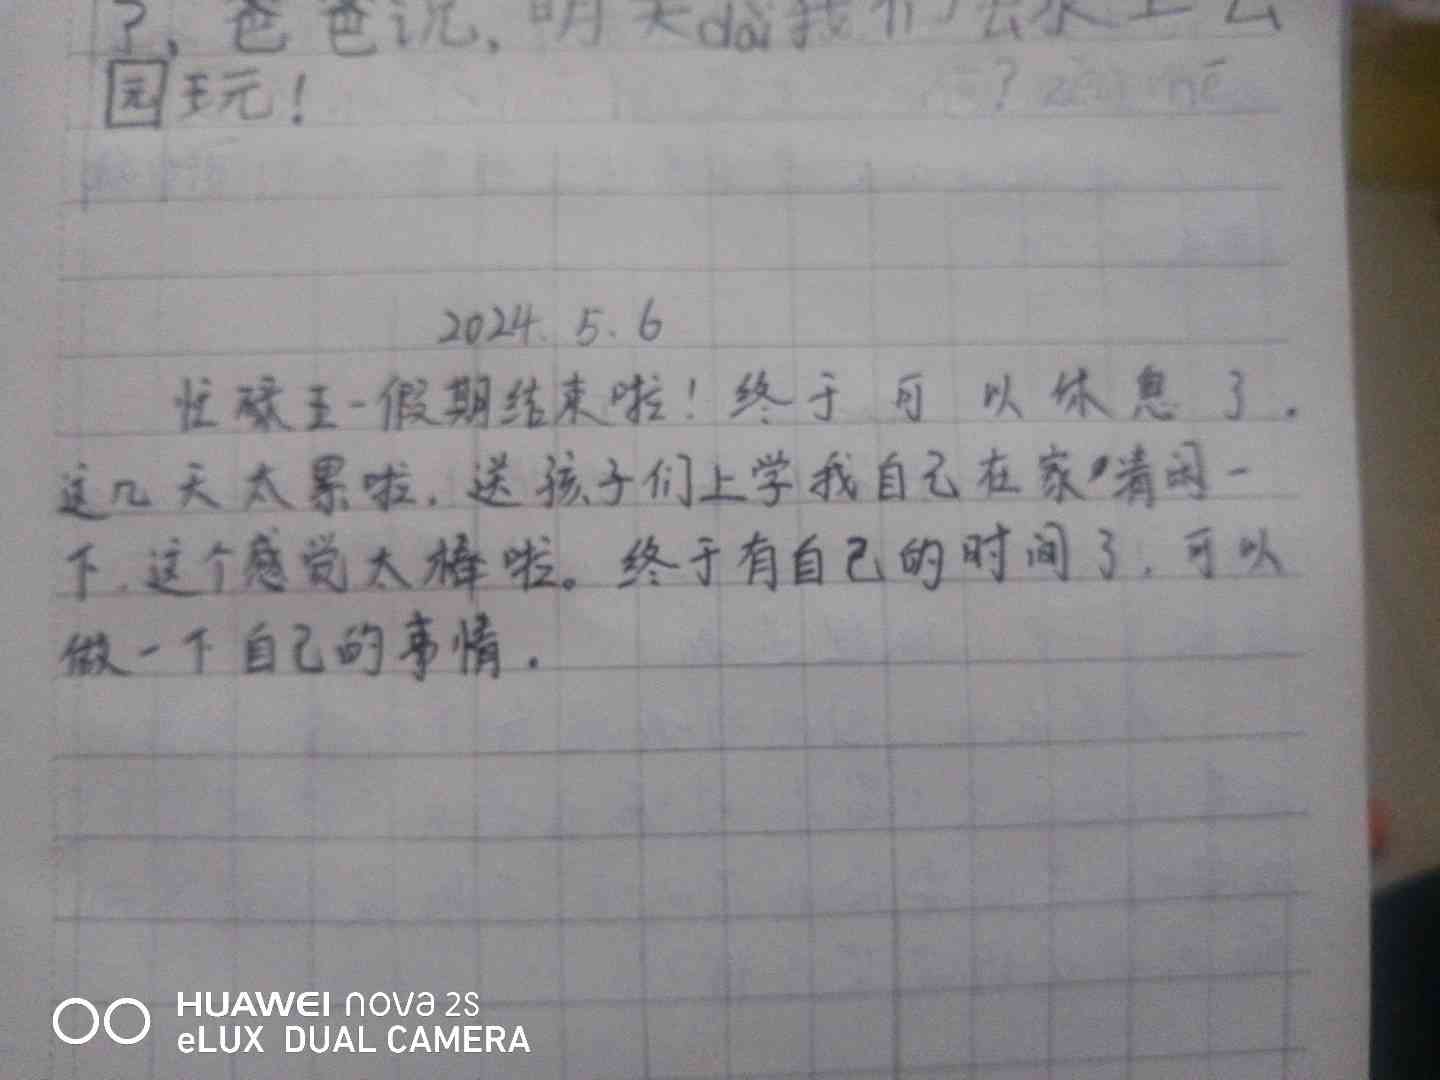 了，爸爸说，明天dài我们去水上公
园玩！
2024.5.6
忙碌五一假期结束啦！终于可以休息了.
这几天太累啦.送孩子们上学我自己在家清闲一
下.这个感觉太棒啦。终于有自己的时间了.可以
做一下自己的事情.
HUAWEI nova 2s
eLUX DUAL CAMERA